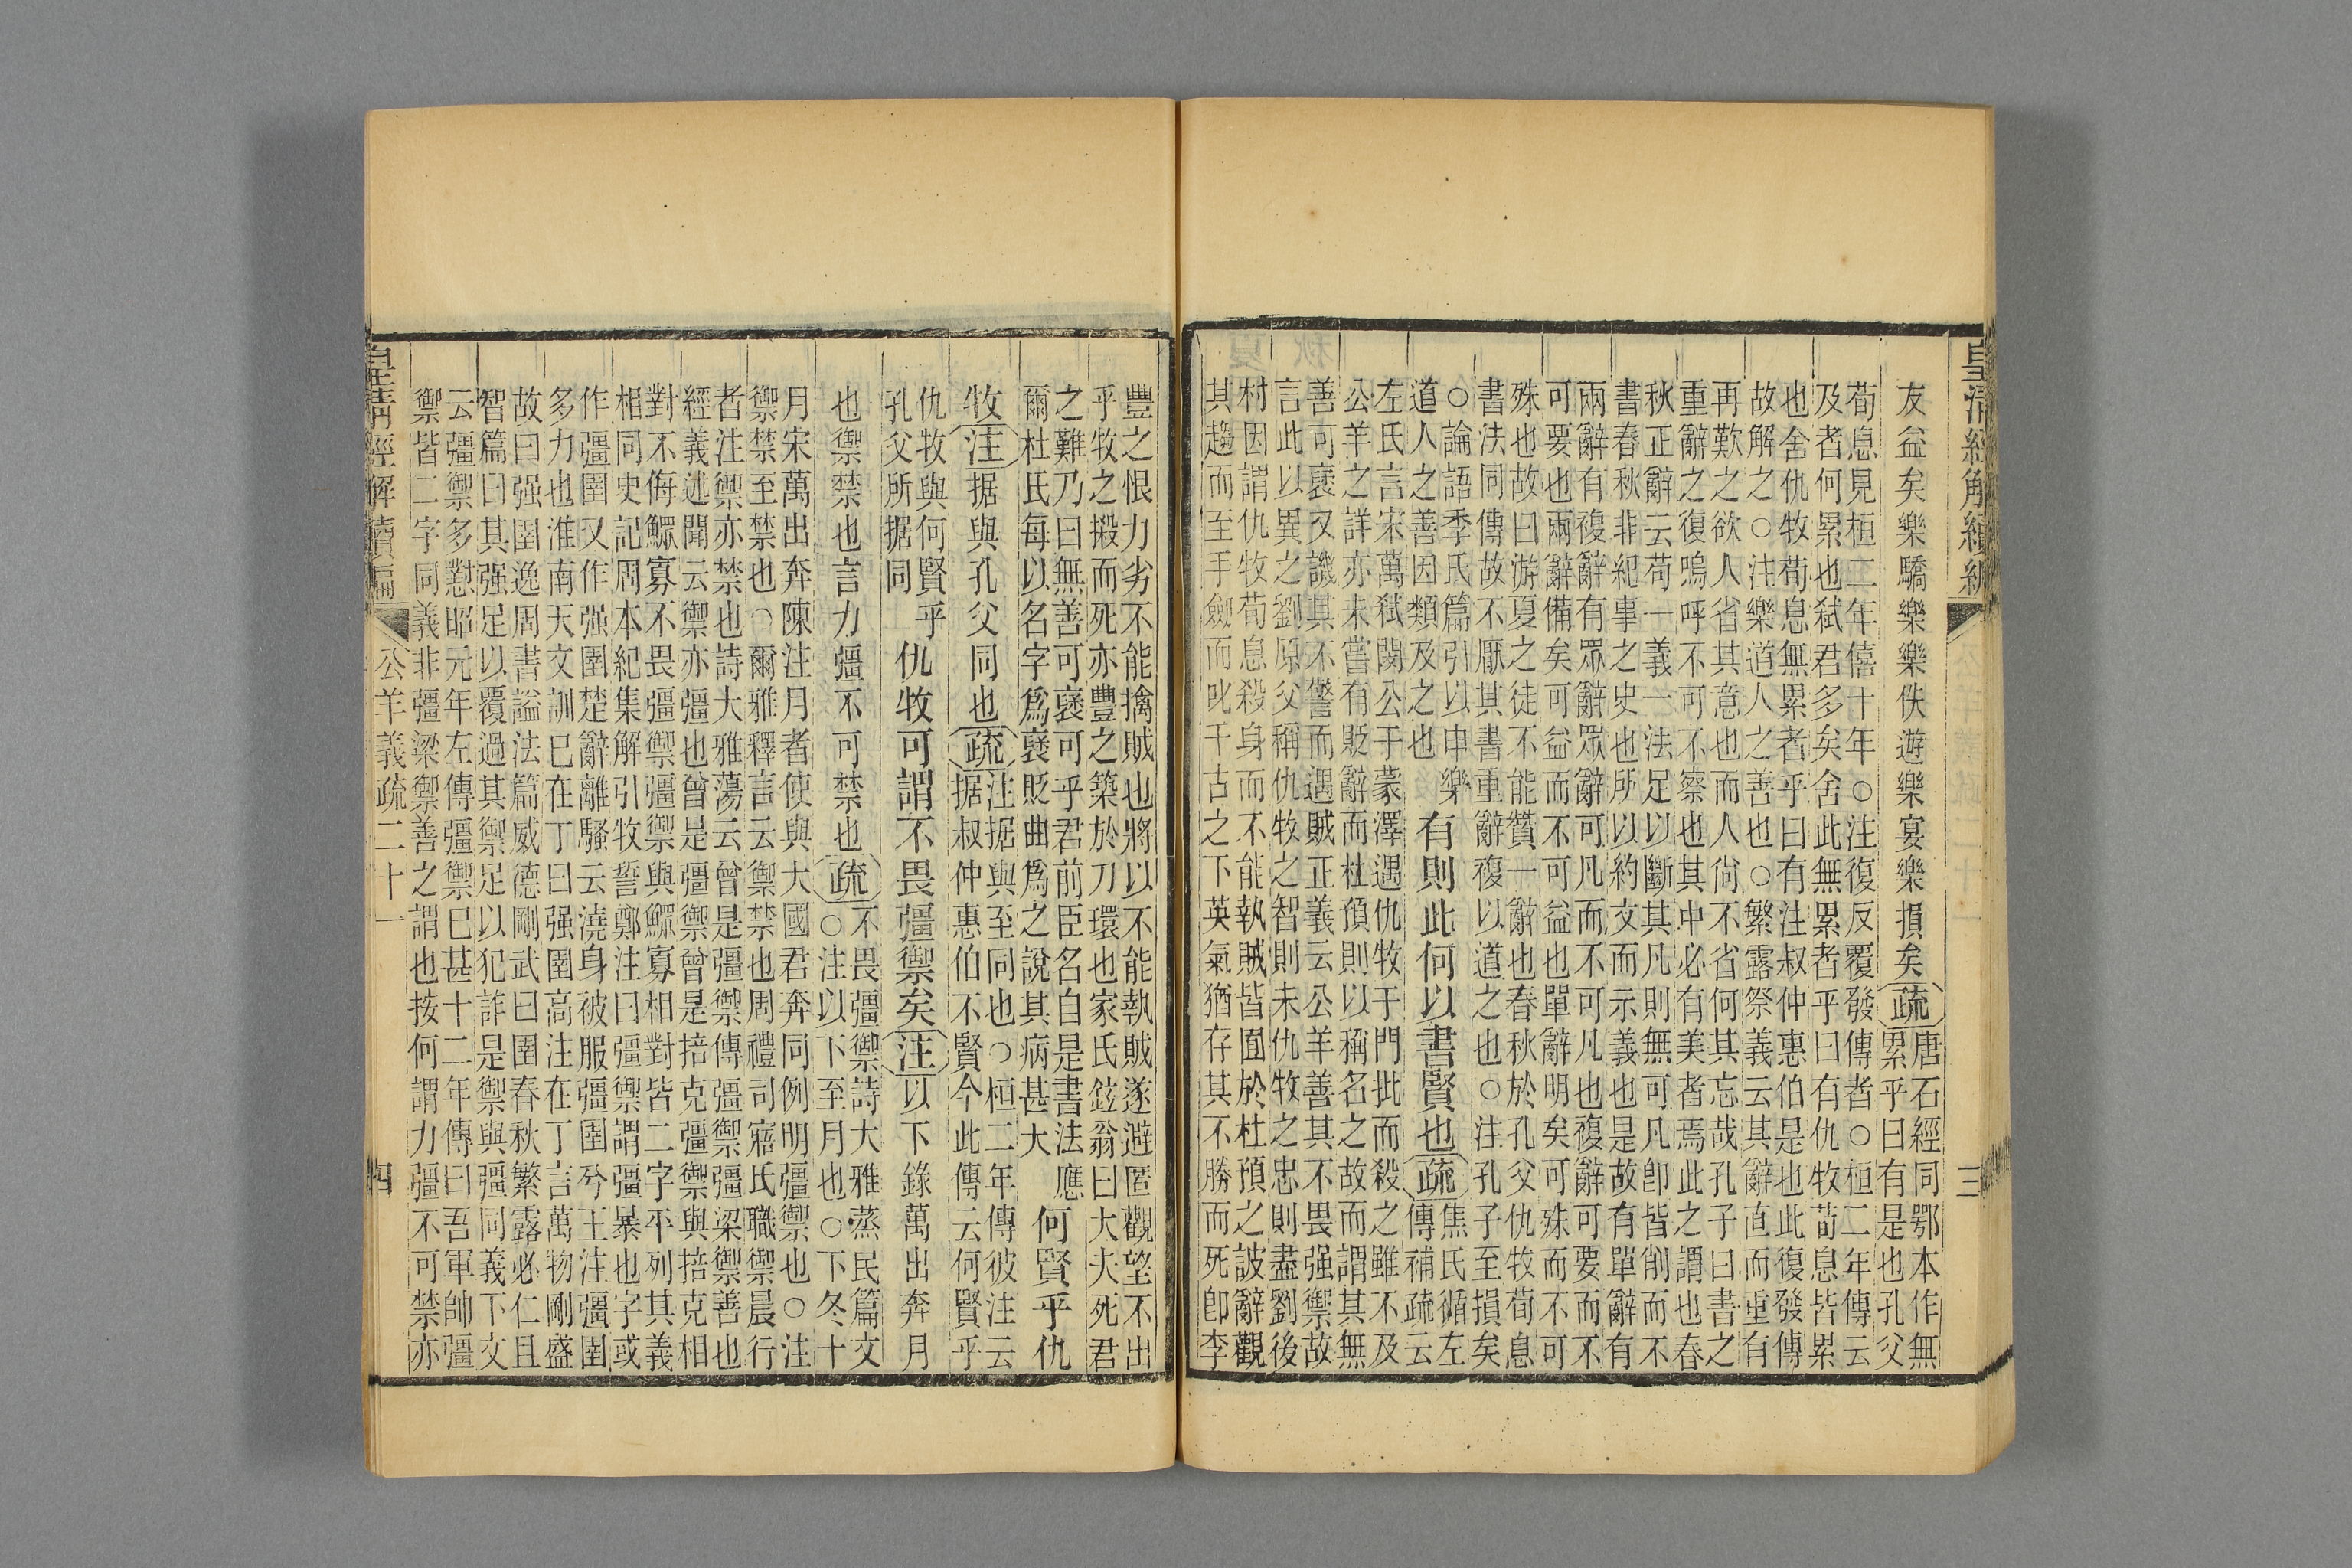 皇清經解續編
三
友益矣樂驕樂樂佚遊樂宴樂損矣疏
唐石經同鄂本作無
累乎曰有是也孔父
荀息見桓二年僖十年○注復反覆發傳者○桓二年傳云
及者何累也弒君多矣舍此無累者乎曰有仇牧荀息皆累
也舍仇牧荀息無累者乎曰有注叔仲惠伯是也此復發傳
故解之○注樂道人之善也○繁露祭義云其辭直而重有
再歎之欲人省其意也而人尚不省何其忘哉孔子曰書之
重辭之復嗚呼不可不察也其中必有美者焉此之謂也春
秋正辭云苟一義一法足以斷其凡則無可凡卽皆削而不
書春秋非紀事之史也所以約文而示義也是故有單辭有
兩辭有複辭有眾辭眾辭可凡而不可凡也複辭可要而不
可要也兩辭備矣可益而不可益也單辭明矣可殊而不可
殊也故曰游夏之徒不能贊一辭也春秋於孔父仇牧荀息
書法同傳故不厭其書重辭複以道之也○注孔子至損矣
○論語季氏篇引以申樂
道人之善因類及之也
有則此何以書賢也疏
焦氏循左
傳補疏云
左氏言宋萬弒閔公于蒙澤遇仇牧于門批而殺之雖不及
公羊之詳亦未嘗有貶辭而杜預則以稱名之故而謂其無
善可褒又譏其不警而遇賊正義云公羊善其不畏强禦故
言此以異之劉原父稱仇牧之智則未仇牧之忠則盡劉後
村因謂仇牧荀息殺身而不能執賊皆囿於杜預之詖辭觀
其趨而至手劍而叱千古之下英氣猶存其不勝而死卽李
豐之恨力劣不能擒賊也將以不能執賊遂避匿觀望不出
乎牧之搬而死亦豐之築於刀環也家氏鉉翁曰大夫死君
之難乃曰無善可褒可乎君前臣名自是書法應
爾杜氏每以名字爲褒貶曲爲之說其病甚大
何賢乎仇
牧注据與孔父同也疏
注据與至同也○桓二年傳彼注云
据叔仲惠伯不賢今此傳云何賢乎
仇牧與何賢乎
孔父所据同
仇牧可謂不畏彊禦矣注以下錄萬出奔月
也禦禁也言力彊不可禁也疏
不畏彊禦詩大雅蒸民篇文
○注以下至月也○下冬十
月宋萬出奔陳注月者使與大國君奔同例明彊禦也○注
禦禁至禁也○爾雅釋言云禦禁也周禮司寤氏職禦晨行
者注禦亦禁也詩大雅蕩云曾是彊禦傳彊禦彊梁禦善也
經義述聞云禦亦彊也曾是彊禦曾是掊克彊禦與掊克相
對不侮鰥寡不畏彊禦彊禦與鰥寡相對皆二字平列其義
相同史記周本紀集解引牧誓鄭注曰彊禦謂彊暴也字或
作彊圉又作强圉楚辭離騷云澆身被服彊圉兮王注彊圉
多力也淮南天文訓巳在丁曰强圉高注在丁言萬物剛盛
故曰强圉逸周書諡法篇威德剛武曰圉春秋繁露必仁且
智篇曰其强足以覆過其禦足以犯詐是禦與彊同義下文
云彊禦多懟昭元年左傳彊禦已甚十二年傳曰吾軍帥彊
禦皆二字同義非彊梁禦善之謂也按何謂力彊不可禁亦
皇清經解續編
公羊義疏二十一
四